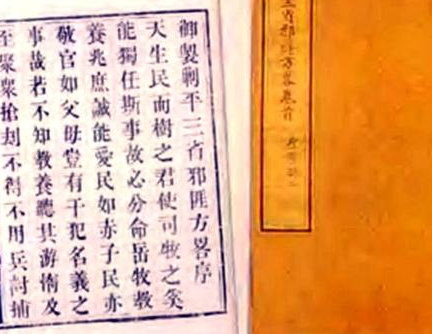 三省邪匪方畧卷首
御製剿平三省邪匪方畧序
天生民而樹之君使司牧之奚
能獨任斯事故必分命岳牧教
養兆庶誠能愛民如赤子民亦
敬官如父母豈有干犯名義之
事哉若不知教養聽其游惰及
至聚衆搶刦不得不用兵討捕